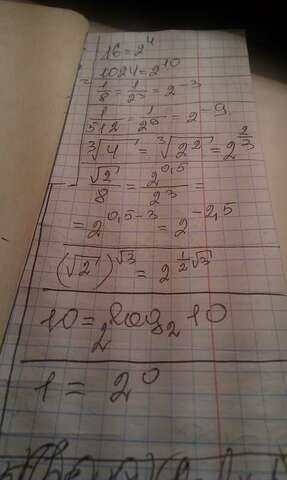 16 = 2⁴
1024 = 2¹⁰
1/8 = 1/2³ = 2⁻³
1/512 = 1/2⁹ = 2⁻⁹
∛4 = ∛2² = 2^(2/3)
√2/8 = 2^0,5/2³ =
= 2^0,5-3 = 2^-2,5
(√2)^√3 = 2^(1/2 √3)
10 = 2^log₂10
1 = 2⁰